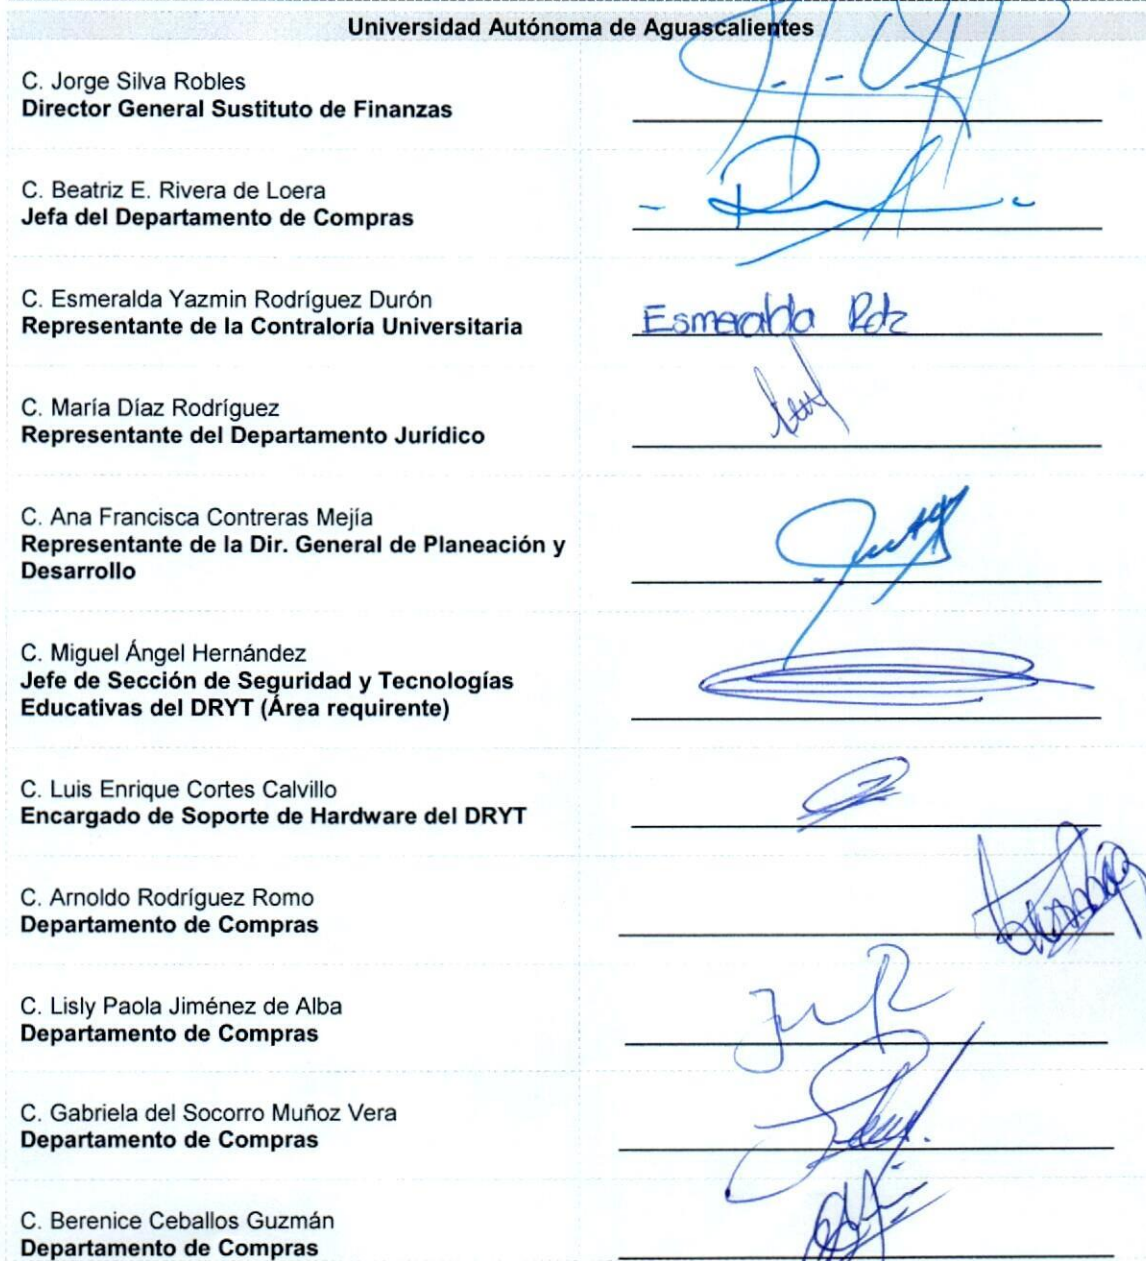 Universidad Autónoma de Aguascalientes
C. Jorge Silva Robles
Director General Sustituto de Finanzas
C. Beatriz E. Rivera de Loera
Jefa del Departamento de Compras
C. Esmeralda Yazmin Rodríguez Durón
Representante de la Contraloría Universitaria
Esmeralda Rdz
C. María Díaz Rodríguez
Representante del Departamento Jurídico
C. Ana Francisca Contreras Mejía
Representante de la Dir. General de Planeación y
Desarrollo
C. Miguel Ángel Hernández
Jefe de Sección de Seguridad y Tecnologías
Educativas del DRYT (Área requirente)
C. Luis Enrique Cortes Calvillo
Encargado de Soporte de Hardware del DRYT
C. Arnoldo Rodríguez Romo
Departamento de Compras
C. Lisly Paola Jiménez de Alba
Departamento de Compras
C. Gabriela del Socorro Muñoz Vera
Departamento de Compras
C. Berenice Ceballos Guzmán
Departamento de Compras